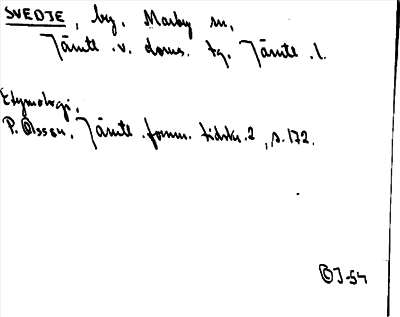 SVEDJE, by, Marby sn,
Jämtl. v. doms. tg. Jämtl. l.
Etymologi,
P. Olsson, Jämtl. fornm. tidskr. 2, s. 172.
OJ-54